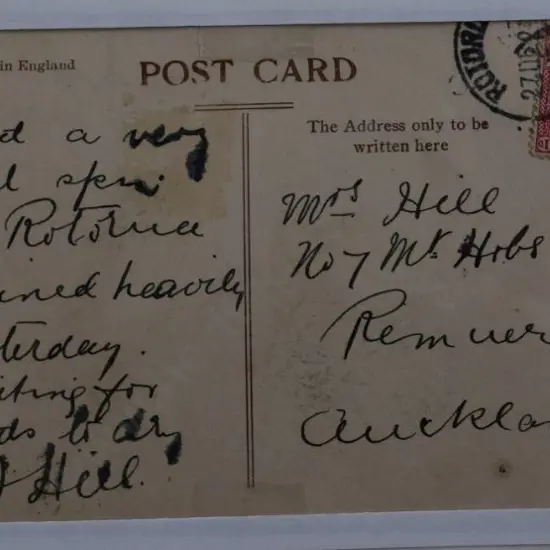 in England
POST CARD
The Address only to be
written here
d a very
l spin
Rotorua
ined heavily
terday.
iting for
ds to dry
Hill.
Mrs Hill
No 7 Mt Hobs
Remuer
Auckla